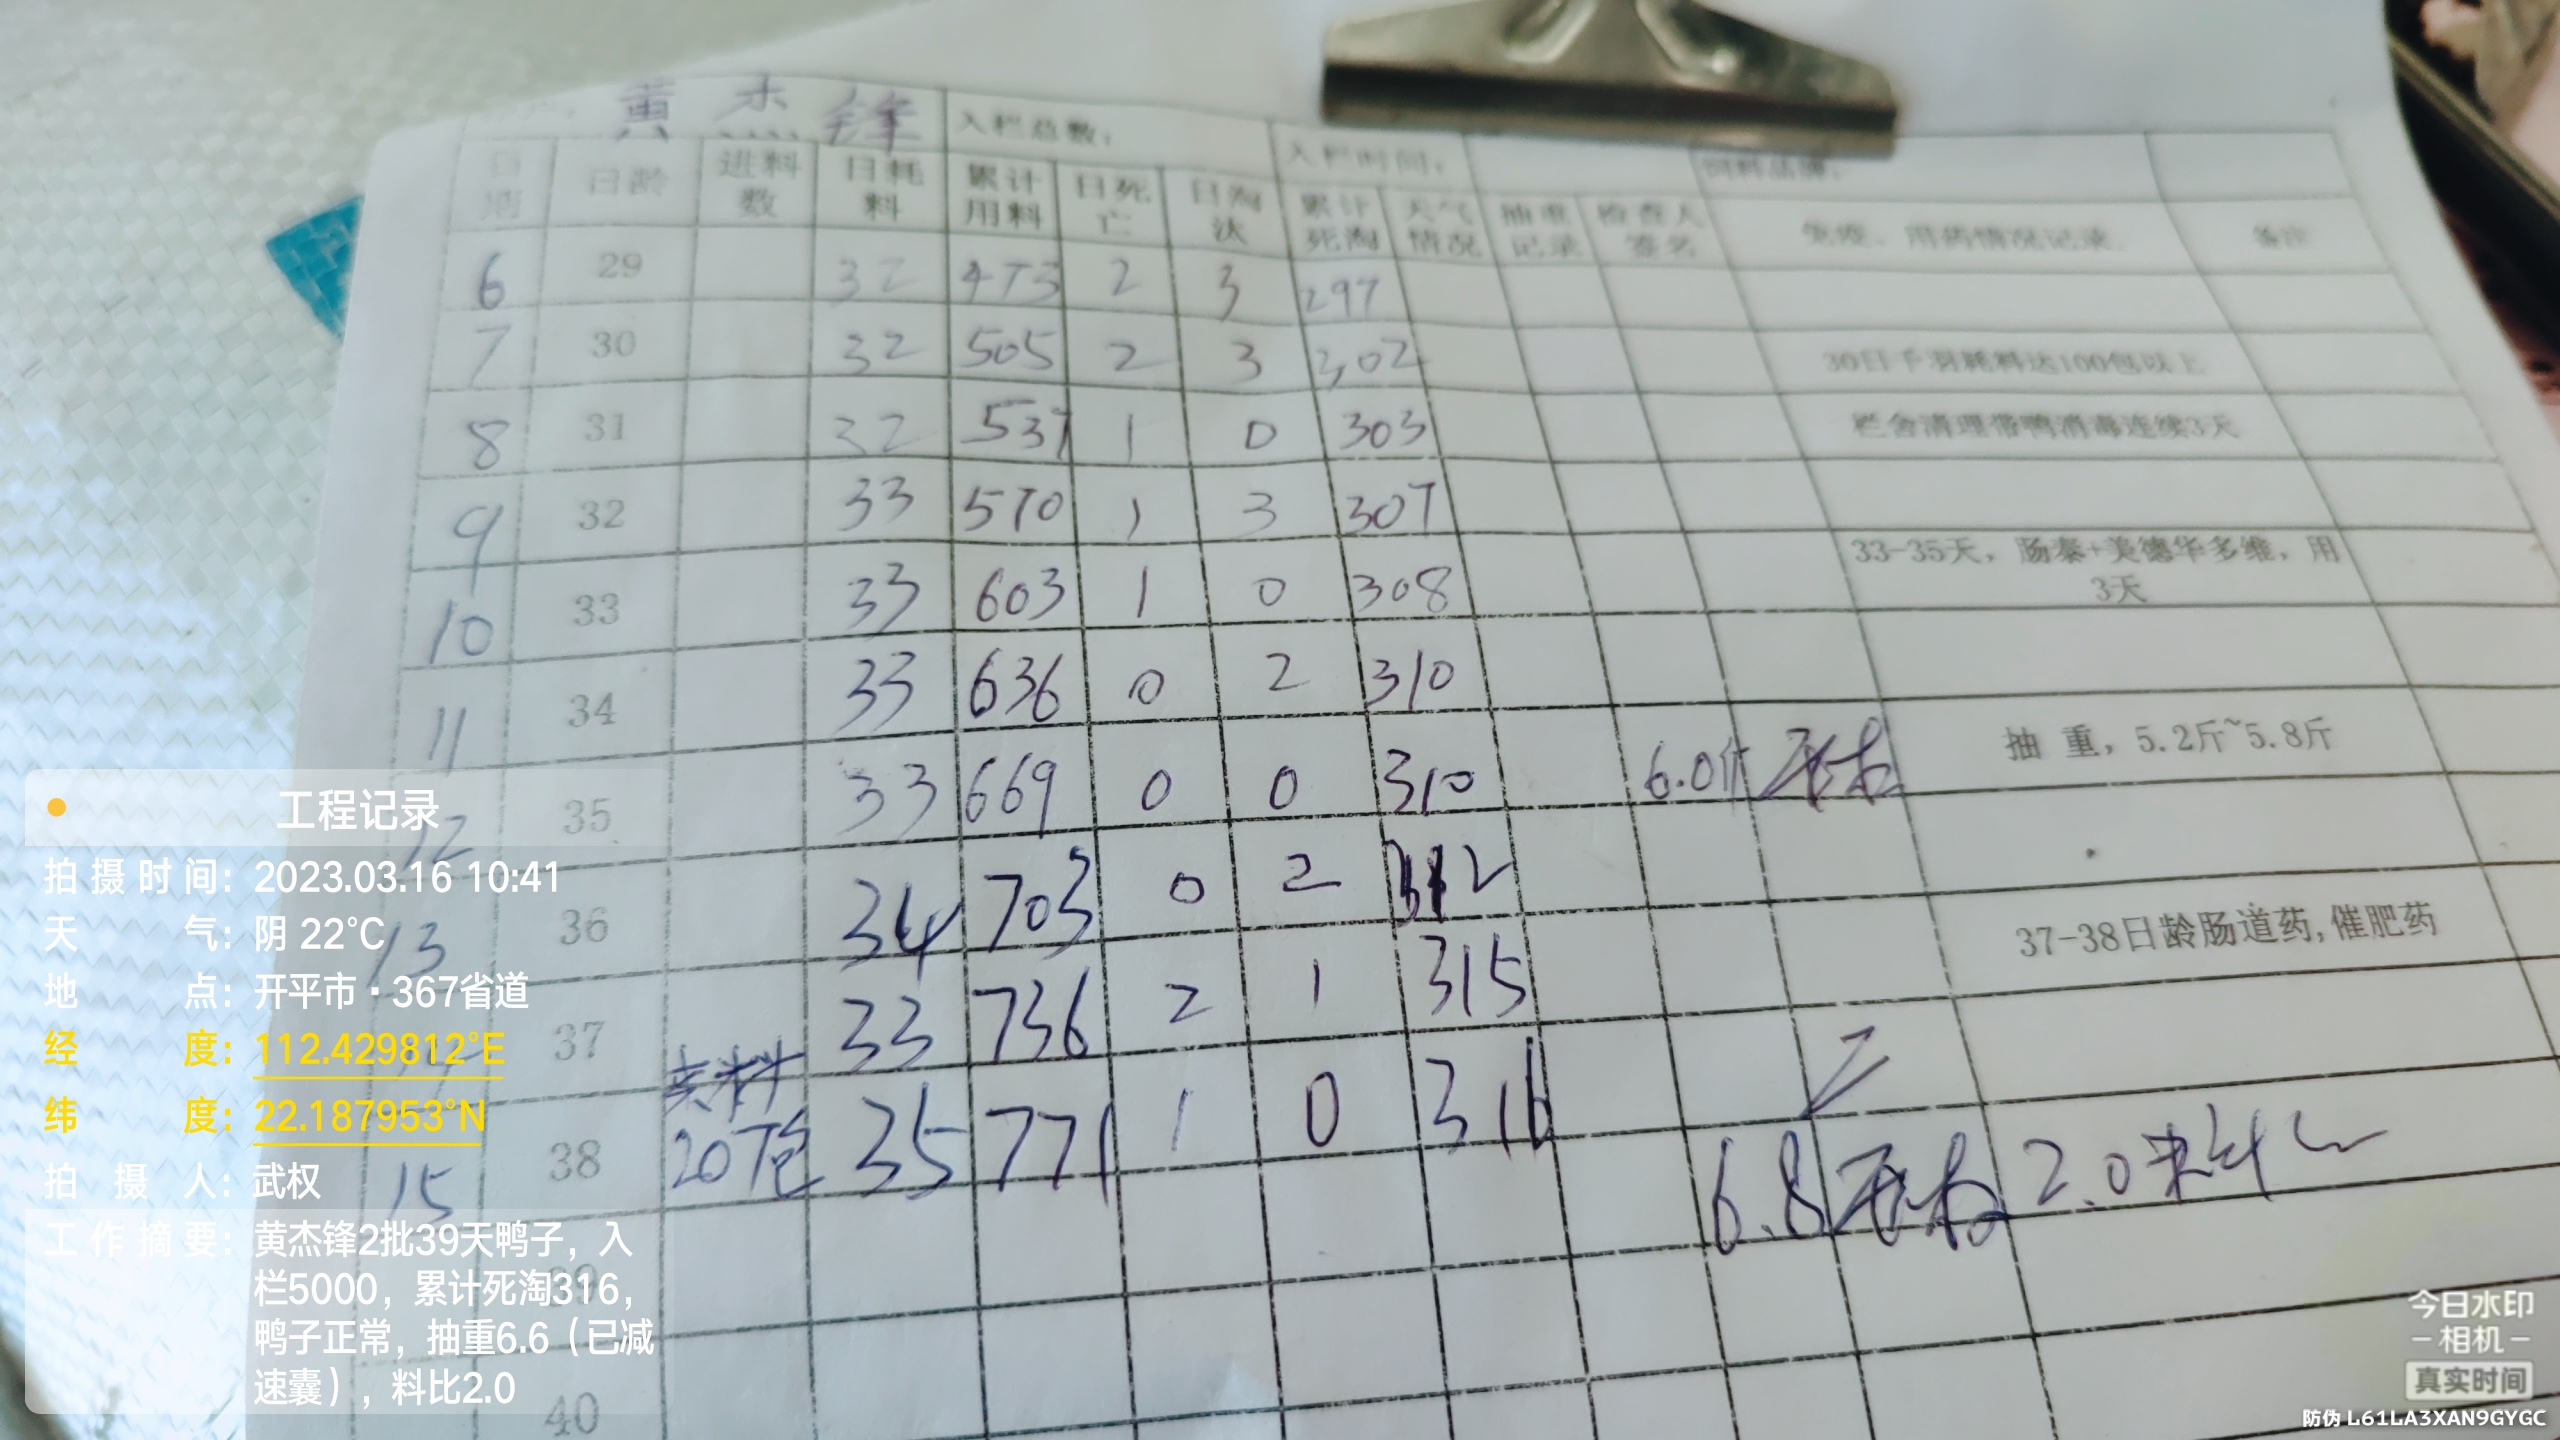 黄杰锋 入栏总数: 入栏时间: 饲料品牌:
日期 日龄 进料数 日耗料 累计用料 日死亡 日淘汰 累计死淘 天气情况 抽重记录 检查人签名 免疫、用药情况记录 备注
6 29 32 473 2 3 297
7 30 32 505 2 3 302 30日千羽耗料达100包以上
8 31 32 537 1 0 303 栏舍清理带鸭消毒连续3天
9 32 33 570 1 3 307
10 33 33 603 1 0 308 33-35天，肠泰+美德华多维，用3天
11 34 33 636 0 2 310
12 35 33 669 0 0 310 6.0斤 抽 重，5.2斤~5.8斤
13 36 34 703 0 2 312
14 37 33 736 2 1 315 37-38日龄肠道药,催肥药
15 38 卖料20包 35 771 1 0 316
6.8 2.0料比
39
40
工程记录
拍摄时间：2023.03.16 10:41
天气：阴 22℃
地点：开平市·367省道
经度：112.429812°E
纬度：22.187953°N
拍摄人：武权
工作摘要：黄杰锋2批39天鸭子，入
栏5000，累计死淘316，
鸭子正常，抽重6.6（已减
速囊），料比2.0
今日水印
-相机-
真实时间
防伪 L61LA3XAN9GYGC